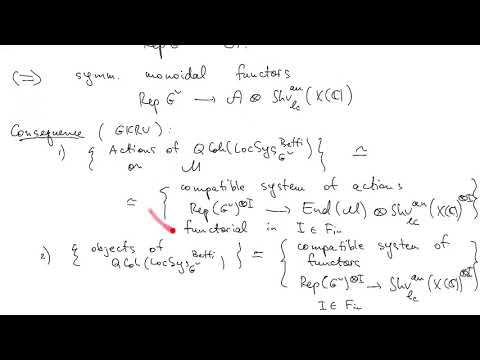 Rep G^∨
(⇒) symm. monoidal functors
Rep G^∨ → A ⊗ Shv_{lc}^{an}(X(ℂ))
Consequence (GKRV):
1) { Actions of QCoh(LocSys_{G^∨}^{Betti}) on M } ≃
≃ { compatible system of actions
Rep(G^∨)^{⊗I} → End(M) ⊗ Shv_{lc}^{an}(X(ℂ))^{⊗I}
functorial in I ∈ Fin }
2) { objects of QCoh(LocSys_{G^∨}^{Betti}) } ≃ { compatible system of
functors
Rep(G^∨)^{⊗I} → Shv_{lc}^{an}(X(ℂ))^{⊗I}
I ∈ Fin }